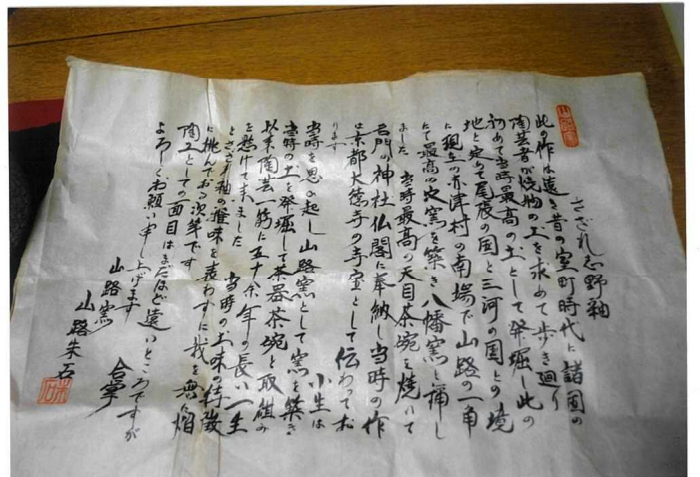 さざれ志野袖
此の作は遠き昔の室町時代に諸国の
陶芸者が焼物の土を求めて歩き廻り
初めて当時最高の土として発掘し此の
地と定めて尾張の国と三河の国との境
に現在の赤津村の南場で山路の一角
にて最高の穴窯を築き八幡窯と称し
ました 当時最高の天目茶碗を焼いて
名門の神社仏閣に奉納し当時の作
は京都大徳寺の寺宝として伝わってお
ります 小生は
当時を思い起し山路窯として窯を築き
当時の土を発掘して茶器茶碗と取組み
以来陶芸一筋に五十余年の長い一生
を懸けて来ました 当時の土味の特徴
とさざれ袖の雅味を表わすに我を無に焰
に挑んでおる次第です
陶工としての面目はまだほど遠いところですが
よろしくお願い申し上げます 合掌
山路窯
山路朱石